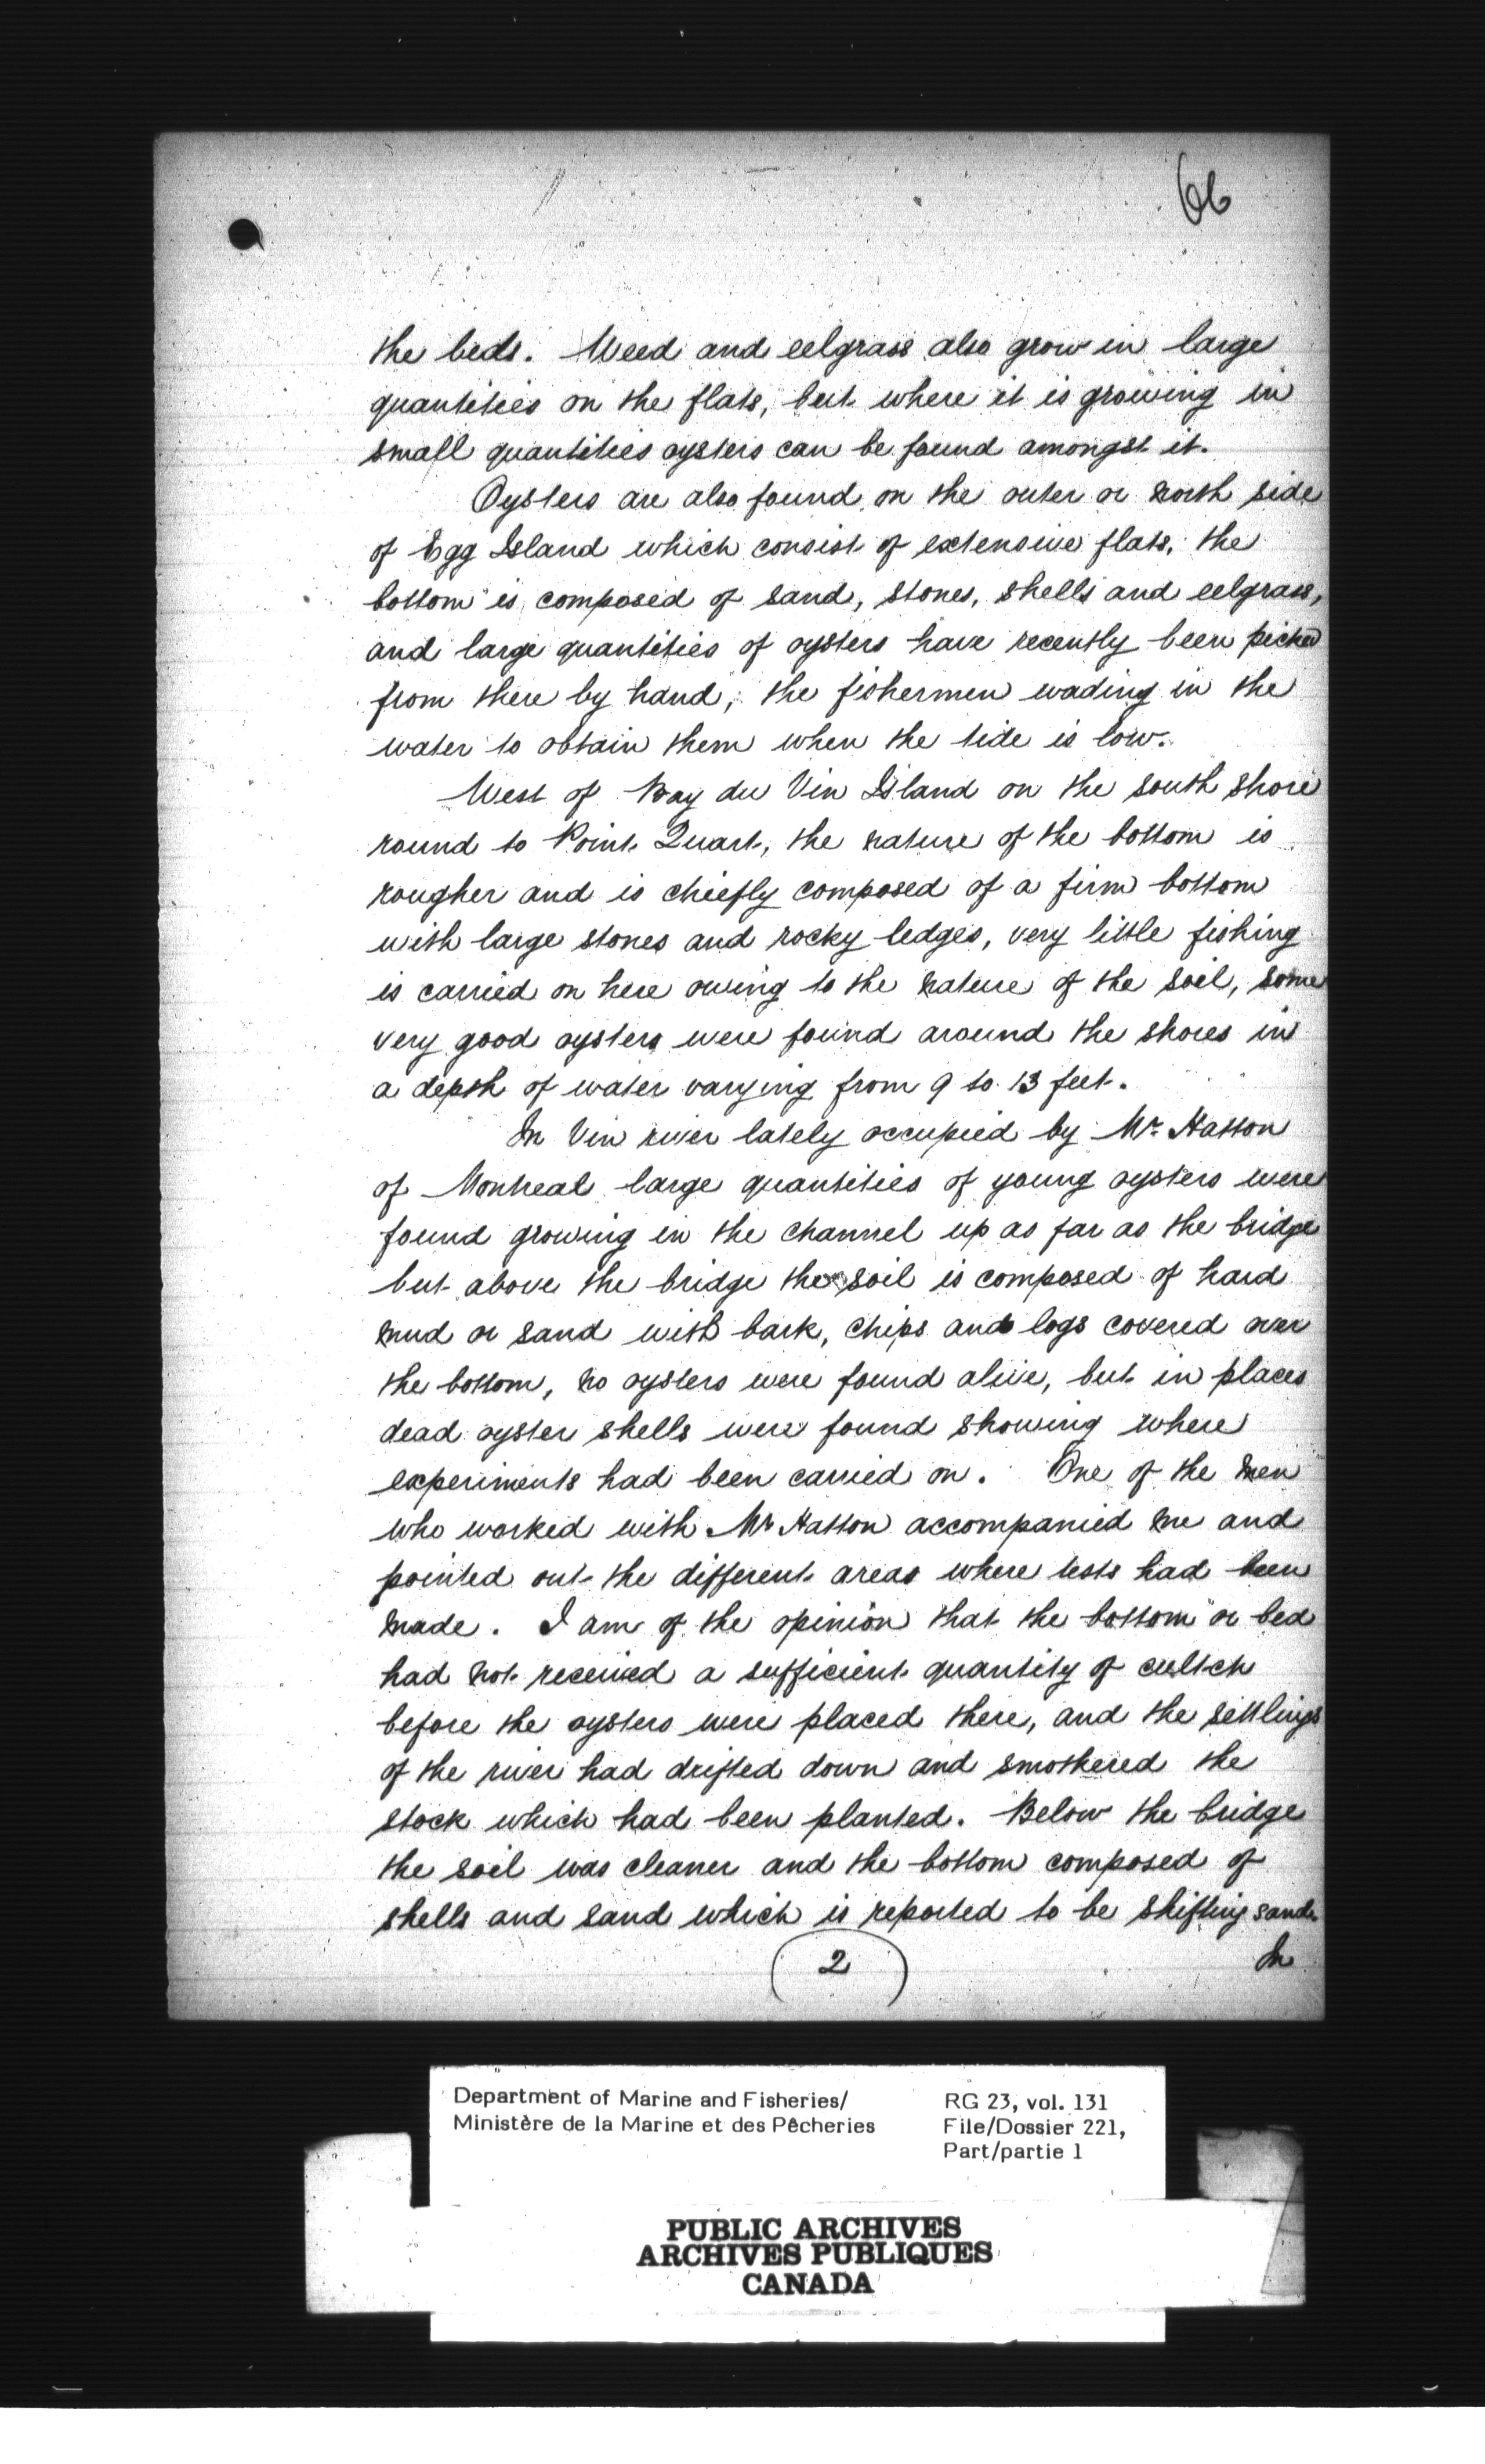 66
the beds. Weed and eelgrass also grow in large
quantities on the flats, but where it is growing in
small quantities oysters can be found amongst it.
Oysters are also found on the outer or north side
of Egg Island which consist of extensive flats, the
bottom is composed of sand, stones, shells and eelgrass,
and large quantities of oysters have recently been picked
from there by hand, the fishermen wading in the
water to obtain them when the tide is low.
West of Bay du Vin Island on the south shore
round to Point Quart, the nature of the bottom is
rougher and is chiefly composed of a firm bottom
with large stones and rocky ledges, very little fishing
is carried on here owing to the nature of the soil, some
very good oysters were found around the shores in
a depth of water varying from 9 to 13 feet.
In Vin river lately occupied by Mr. Hatton
of Montreal large quantities of young oysters were
found growing in the channel up as far as the bridge
but above the bridge the soil is composed of hard
mud or sand with bark, chips and logs covered over
the bottom, no oysters were found alive, but in places
dead oyster shells were found showing where
experiments had been carried on. One of the men
who worked with Mr Hatton accompanied me and
pointed out the different areas where tests had been
made. I am of the opinion that the bottom or bed
had not received a sufficient quantity of cultch
before the oysters were placed there, and the settlings
of the river had drifted down and smothered the
stock which had been planted. Below the bridge
the soil was cleaner and the bottom composed of
shells and sand which is reported to be shifting sand.
2
In
Department of Marine and Fisheries/
Ministère de la Marine et des Pêcheries
RG 23, vol. 131
File/Dossier 221,
Part/partie 1
PUBLIC ARCHIVES
ARCHIVES PUBLIQUES
CANADA